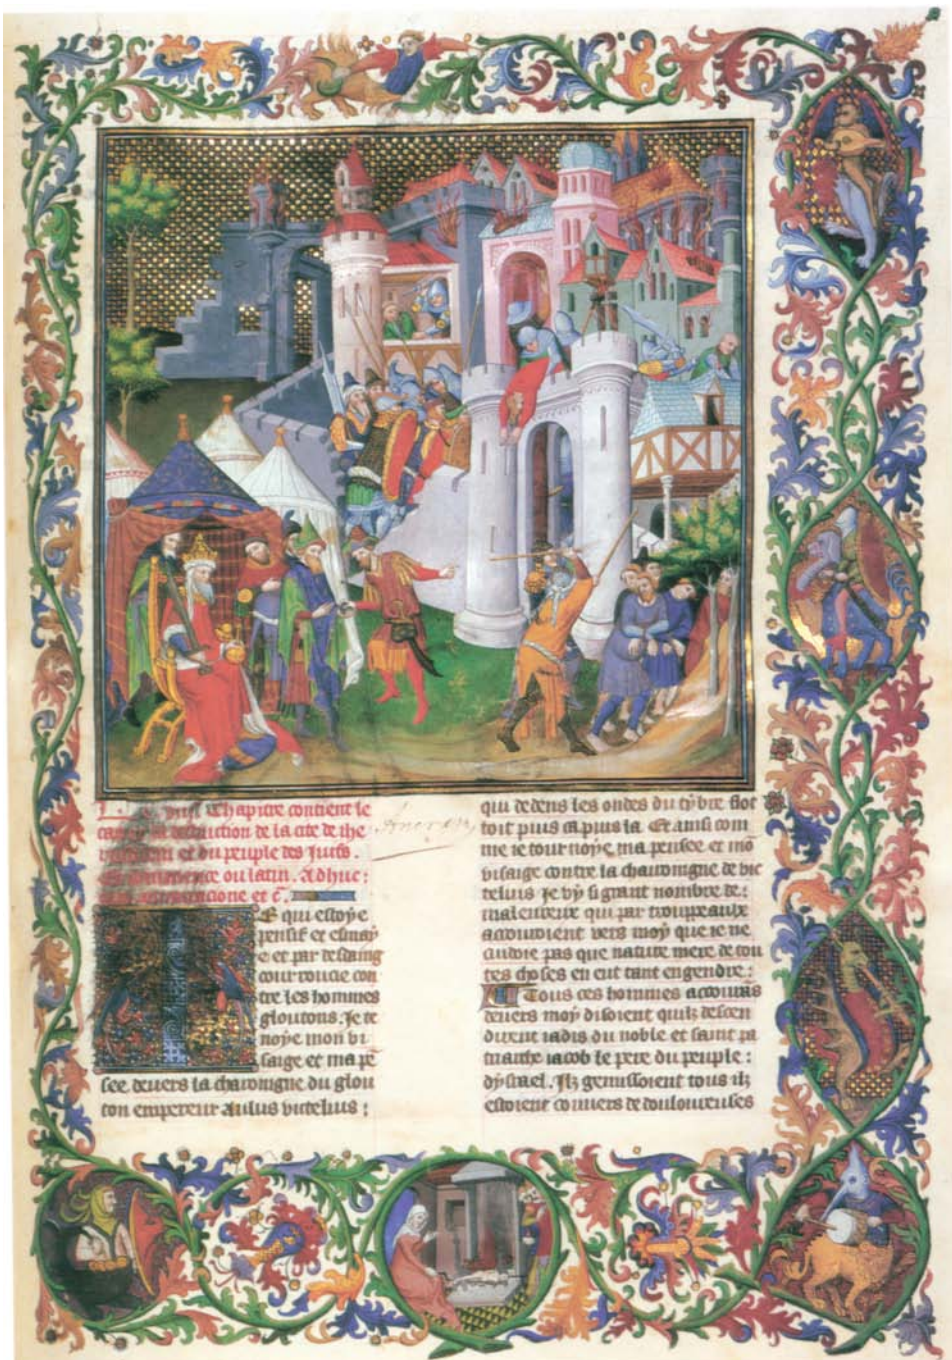 Chapitre contient le
destruction de la cite de the
et du peuple des Juifs.
ou latin. Adhuc:
et c̄.
E qui estoye
pensif et esmay
e et par desdaing
courroucie con
tre les hommes
gloutons. Je te
noye mon vi
saige et ma pē
see deuers la charoingne du glou
ton empereur Aulus victelius:
qui dedens les ondes du tybre flot
toit puis ca puis la. Et ainsi com
me ie tournoye ma pensee et mō
visaige contre la charoingne de vic
telius Je vy si grant nombre de:
maleureux qui par trouppeaulx
acouroient vers moy que ie ne
cuidoie pas que nature mere de tou
tes choses en eut tant engendre:
Tous ces hommes accourās
deuers moy disoient quilz descen
dirent iadis du noble et saint pa
triarche iacob le pere du peuple:
dysrael. Ilz gemissoient tous ilz
estoient couuers de douloureuses